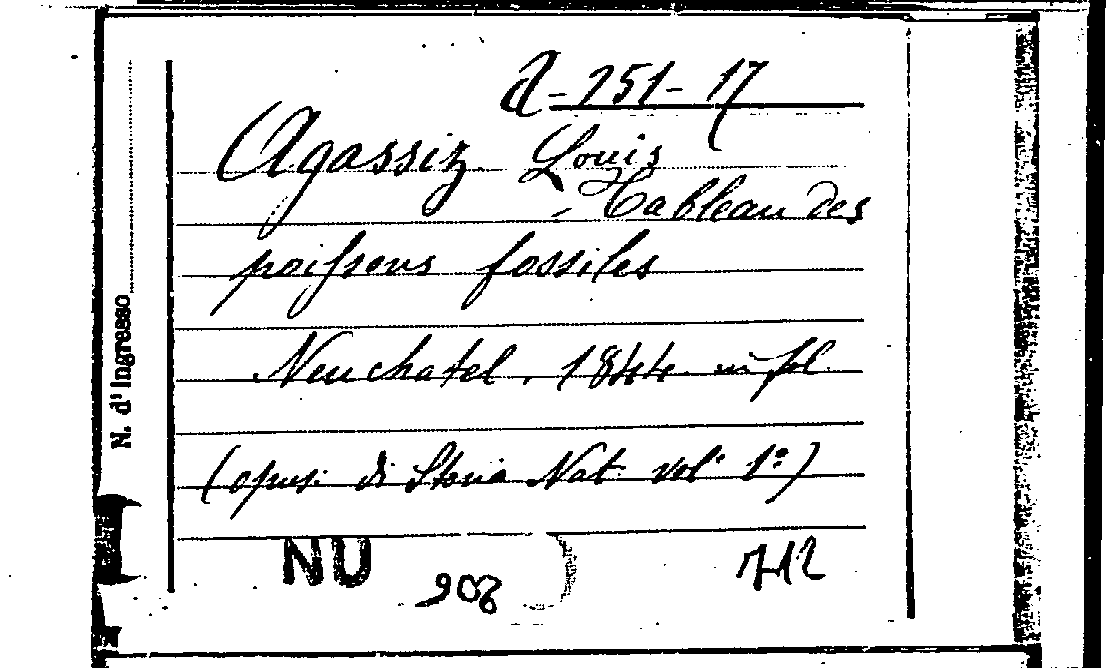 A-251-17
Agassiz Louis
- Tableau des
poissons fossiles
Neuchatel, 1844 in fol.
(opus: di Storia Nat. vol. 1º)
NU 908 712
N. d'Ingresso